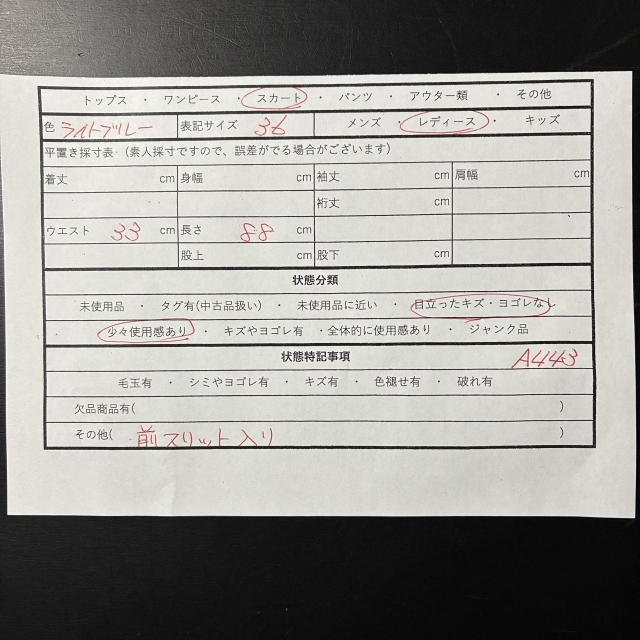 トップス ・ ワンピース ・ スカート ・ パンツ ・ アウター類 ・ その他
色 ライトブルー 表記サイズ 36 メンズ ・ レディース ・ キッズ
平置き採寸表（素人採寸ですので、誤差がでる場合がございます）
着丈 cm 身幅 cm 袖丈 cm 肩幅 cm
裄丈 cm
ウエスト 33 cm 長さ 88 cm
股上 cm 股下 cm
状態分類
未使用品 ・ タグ有(中古品扱い) ・ 未使用品に近い ・ 目立ったキズ・ヨゴレなし
少々使用感あり ・ キズやヨゴレ有 ・全体的に使用感あり ・ ジャンク品
状態特記事項 A443
毛玉有 ・ シミやヨゴレ有 ・ キズ有 ・ 色褪せ有 ・ 破れ有
欠品商品有( )
その他( 前スリット入り )